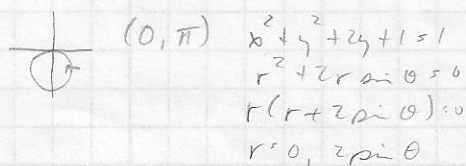 (0, π)
x² + y² + 2y + 1 = 1
r² + 2r sin θ = 0
r(r + 2 sin θ) = 0
r = 0, 2 sin θ